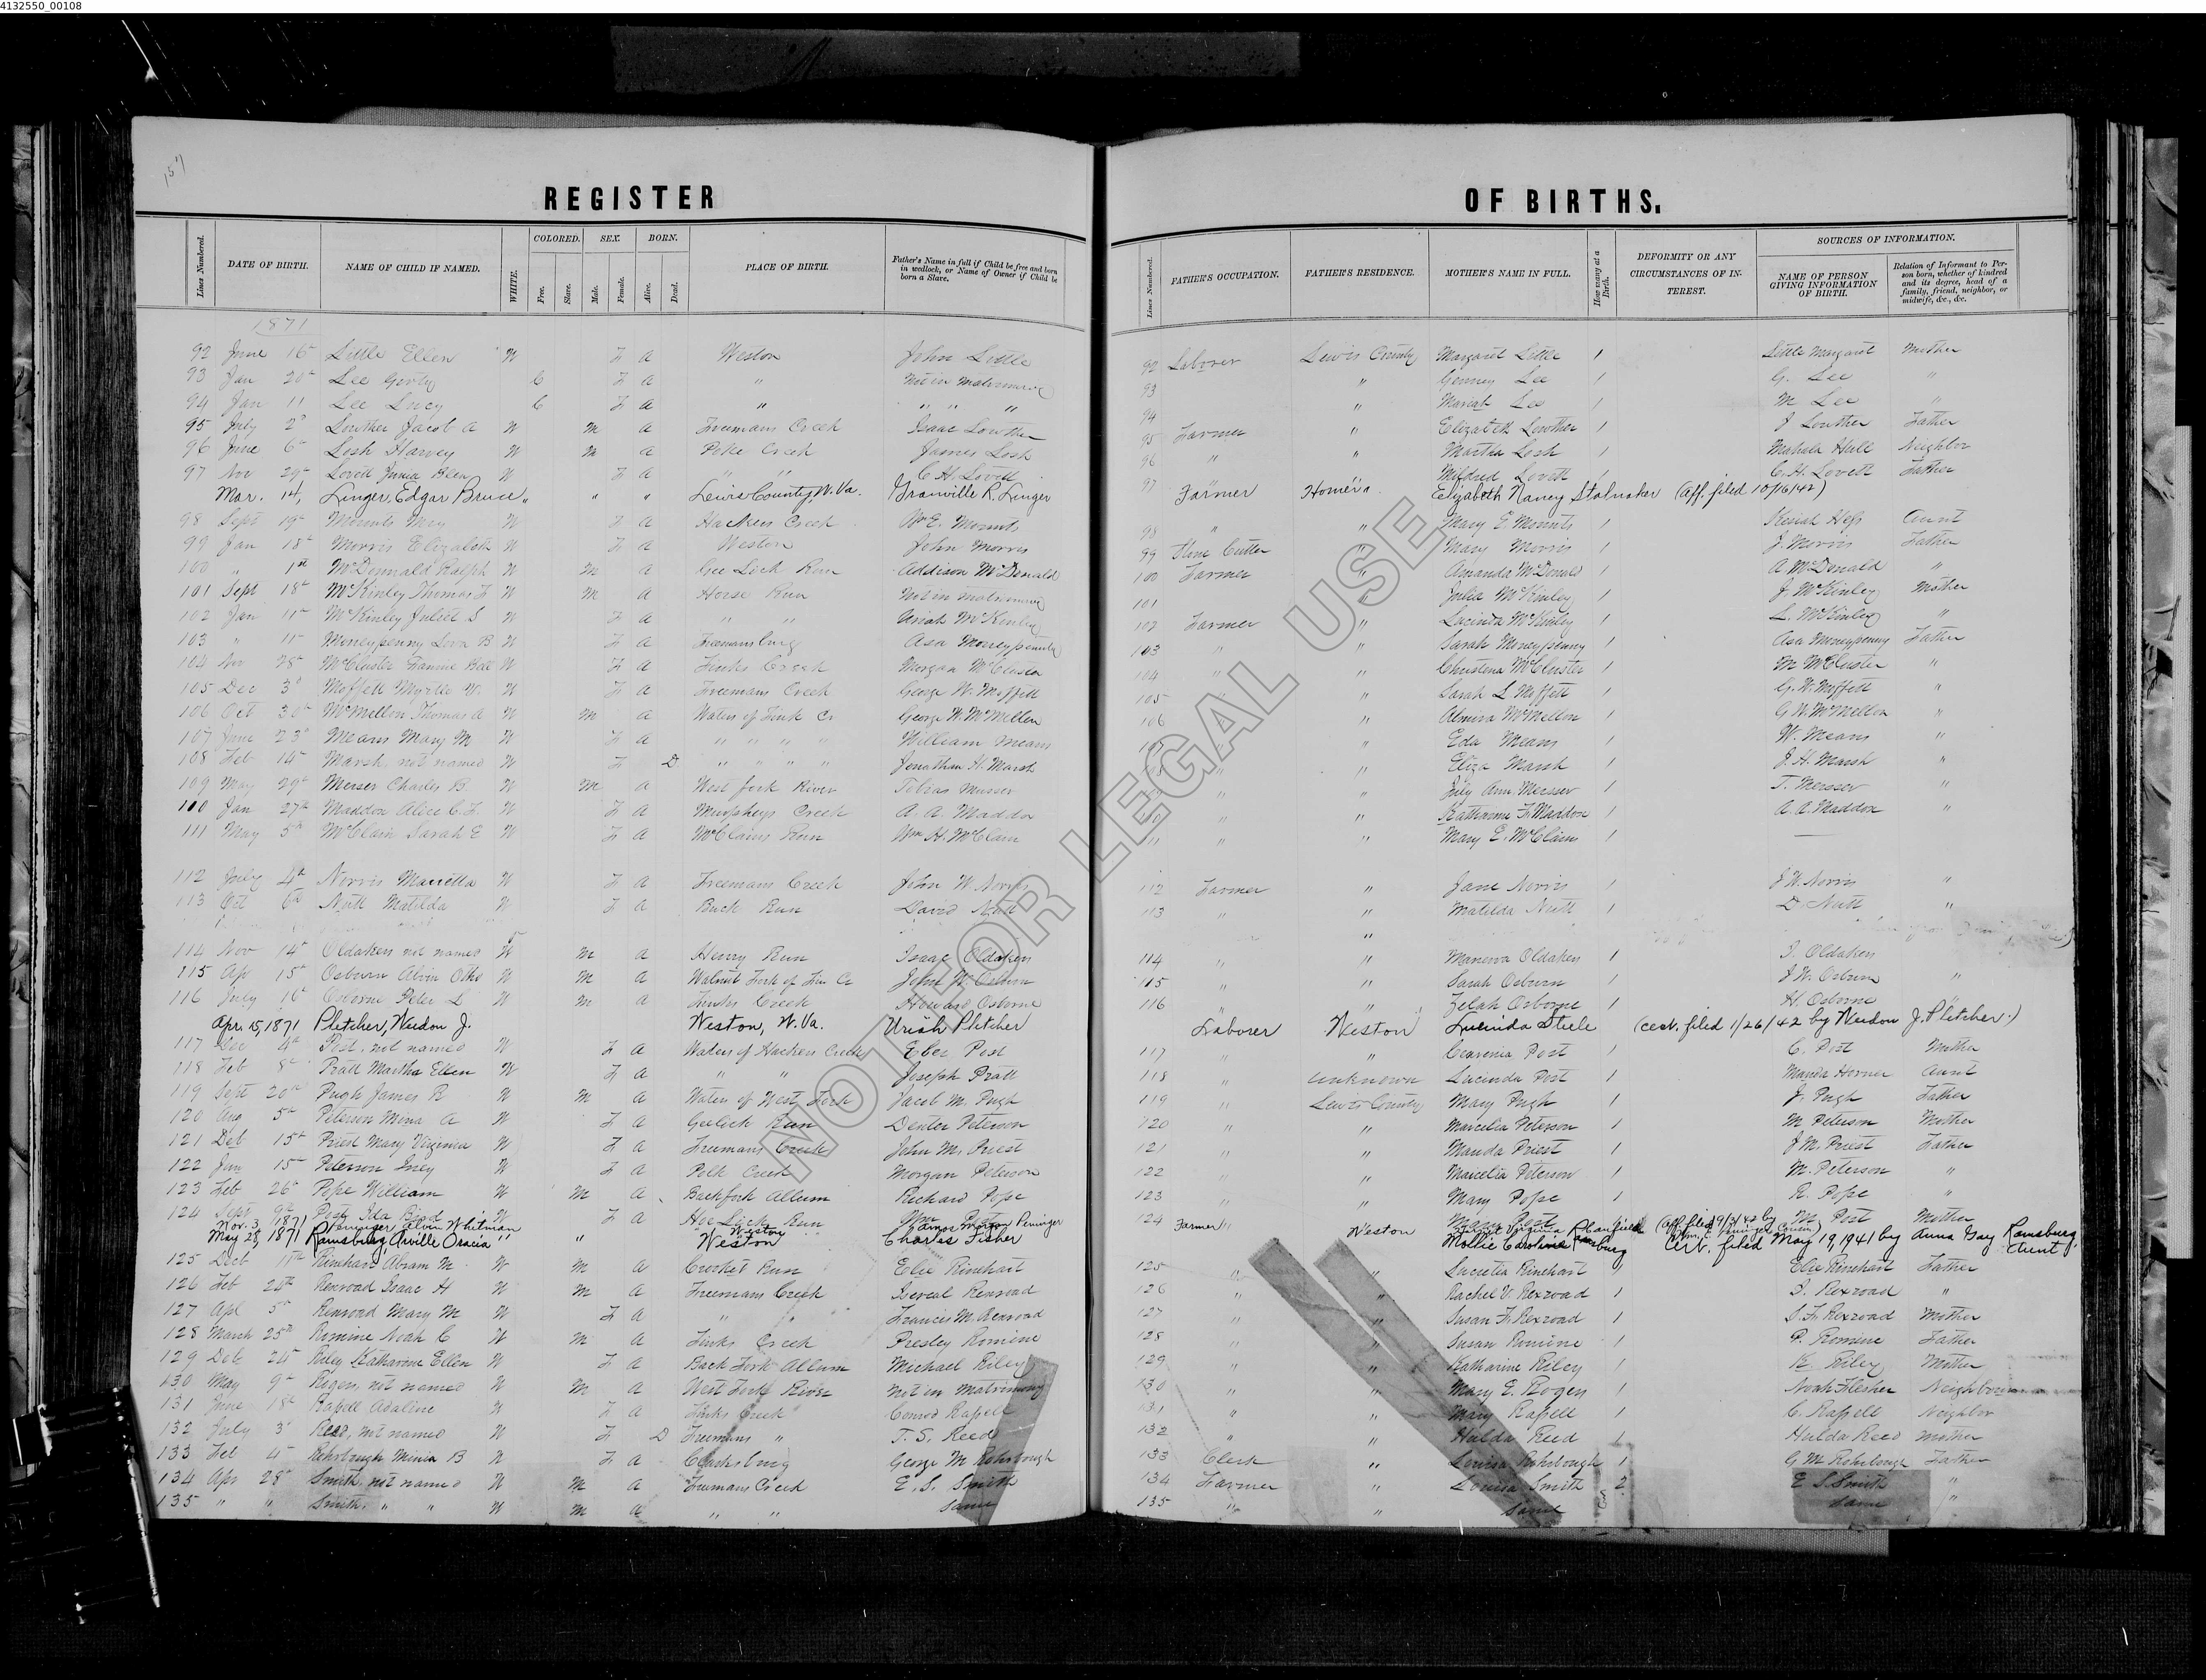 4132550_00108
157
REGISTER OF BIRTHS.
Lines Numbered. DATE OF BIRTH. NAME OF CHILD IF NAMED. WHITE. COLORED. Free. Slave. SEX. Male. Female. BORN. Alive. Dead. PLACE OF BIRTH. Father's Name in full if Child be free and born in wedlock, or Name of Owner if Child be born a Slave.
Lines Numbered. FATHER'S OCCUPATION. FATHER'S RESIDENCE. MOTHER'S NAME IN FULL. How many at a Birth. DEFORMITY OR ANY CIRCUMSTANCES OF INTEREST. SOURCES OF INFORMATION. NAME OF PERSON GIVING INFORMATION OF BIRTH. Relation of Informant to Person born, whether of kindred and its degree, head of a family, friend, neighbor, or midwife, &c., &c.
1871
92 June 16 Little Ellen W F A Weston John Little 92 Laborer Lewis County Margaret Little 1 Little Margaret Mother
93 Jan 20 Lee C F A " Not in Matrimony 93 " Lee 1 G. Lee "
94 Jan 11 Lee Lucy C F A " " " " 94 " Mariah Lee 1 M Lee "
95 July 2 Lowther Jacob A W M A Freemans Creek Isaac Lowther 95 Farmer " Elizabeth Lowther 1 J Lowther Father
96 June 6 Losh Harvey W M A Polk Creek James Losh 96 " " Martha Losh 1 Mahala Hull Neighbor
97 Nov 29 Lovett W F A " " C. H. Lovett 97 Mildred Lovett 1 C. H. Lovett Father
Mar. 14, Linger, Edgar Bruce " " " Lewis County W. Va. Granville R. Linger Farmer Homer Elizabeth Nancy Stalnaker (Aff. filed 10/16/42)
98 Sept 19 Mounts May W F A Hackers Creek Wm E. Mounts 98 " " Mary E Mounts 1 Keziah Hess Aunt
99 Jan 18 Morris Elizabeth W F A Weston John Morris 99 Stone Cutter " Mary Morris 1 J. Morris Father
100 " 1st McDonnald Ralph W M A Gee Lick Run Addison McDonald 100 Farmer " Amanda McDonald 1 A McDonald "
101 Sept 18 McKinley Thomas F W M A Horse Run Not in matrimony 101 " Julia McKinley 1 J McKinley Mother
102 Jan 11 McKinley Juliet S W F A " " Uriah McKinley 102 Farmer " Lucinda McKinley 1 L. McKinley "
103 " 11 Moneypenny Lora B W F A Freemansburg Asa Moneypenny 103 " " Sarah Moneypenny 1 Asa Moneypenny Father
104 Nov 28 McCluster Fannie W F A Finks Creek Morgan McCluster 104 " " Christena McCluster 1 M McCluster "
105 Dec 3 Moffett Myrtle W. W F A Freemans Creek George W. Moffett 105 " " Sarah L Moffett 1 G. W. Moffett "
106 Oct 30 McMellon Thomas A W M A Waters of Fink Cr George W. McMellen 106 " " Almira McMellon 1 G W. McMellon "
107 June 23 Means Mary M W F A " " " " William Means 107 " " Eda Means 1 W. Means "
108 Feb 14 Marsh, not named W F D " " " " Jonathan H. Marsh 108 " " Eliza Marsh 1 J. H. Marsh "
109 May 29 Merser Charles B. W M A West fork River Tobias Musser 109 " " July Ann Mersser 1 T. Mersser "
100 Jan 27th Maddox Alice C. F. W F A Murpheys Creek A. A. Maddox 110 " " Katharine F. Maddox 1 A. A. Maddox "
111 May 5th McClain Sarah E W F A McClains Run Wm H. McClain 111 " " Mary E. McClain 1
112 July 4th Norris Marietta W F A Freemans Creek John W. Norris 112 Farmer " Jane Norris 1 J W. Norris "
113 Oct 6th Nutt Matilda W F A Buck Run David Nutt 113 " " Matilda Nutt 1 D. Nutt "
114 Nov 14 Oldaken not named W M A Henry Run Isaac Oldaken 114 " " Manerva Oldaken 1 I. Oldaken
115 Ap 15 Osburn Alvin Otho W M A Walnut Fork of Fin Cr John W. Osburn 115 " " Sarah Osburn 1 J W. Osburn "
116 July 16 Osborne Peter L W M A Finks Creek Howard Osborne 116 " " Zelah Osborne 1 H. Osborne "
Apr. 15, 1871 Pletcher, Weedon J. Weston, W. Va. Uriah Pletcher Laborer Weston Lucinda Steele (cert. filed 1/26/42 by Weedon J. Pletcher.)
117 Dec 4th Post, not named W F A Waters of Hackers Creek Eber Post 117 " " Post 1 C. Post Mother
118 Feb 8 Pratt Martha Ellen W F A " " Joseph Pratt 118 " Unknown Lucinda Post 1 Manda Horner Aunt
119 Sept 20th Pugh James R W M A Waters of West Fork Jacob M. Pugh 119 " Lewis County Mary Pugh 1 J. Pugh Father
120 Aug 5th Peterson Mina A W F A Geelick Run Denter Peterson 120 " " Marcelia Peterson 1 M Peterson Mother
121 Deb 15th Priest Mary Virginia W F A Freemans Creek John M. Priest 121 " " Manda Priest 1 J M. Priest Father
122 Jun 15 Peterson W F A Polk Creek Morgan Peterson 122 " " Marcelia Peterson 1 M. Peterson "
123 Feb 26 Pope William W M A Backfork Allum Richard Pope 123 " " Mary Pope 1 R. Pope "
124 Sept 9th Post Ida W F A Run Wm Post 124 " Mary Post 1 M Post Mother
Nov. 3, 1871 Peninger Alvin Whitman Weston Amos Morgan Peninger Farmer Weston Virginia (Aff. filed 9/3/42 by Peninger, Cousin)
May 28, 1871 Ramsburg, Orville Oracia " " Weston Charles Fisher Mollie Caroline Ramsburg Cert. filed May 19, 1941 by Anna Gay Ramsburg, Aunt
125 Dec 11th Rinehart Abram M W M A Crocket Run Elie Rinehart 125 " " Lucretia Rinehart 1 Elie Rinehart Father
126 Feb 24th Rexroad Isaac H W M A Freemans Creek Rexroad 126 " " Rachel V. Rexroad 1 Rexroad "
127 Apl 5th Rexroad Mary M W F A " " Francis M. Rexroad 127 " " Susan F. Rexroad 1 S. F. Rexroad Mother
128 March 25th Romine Noah C W M A Finks Creek Presley Romine 128 " " Susan Romine 1 P. Romine Father
129 Deb 24 Riley Katharine Ellen W F A Back Fork Allum Michael Riley 129 " " Katharine Riley 1 K. Riley Mother
130 May 9 Rogers, not named W M A West Fork River Not in Matrimony 130 " " Mary E. Rogers 1 Noah Flesher Neighbor
131 June 18 Rapell Adaline W F A Finks Creek Conrod Rapell 131 " " Mary Rapell 1 C. Rapell Neighbor
132 July 3 Reed, not named W F D Freemans " T. S. Reed 132 " " Hulda Reed 1 Hulda Reed Mother
133 Feb 4 Rohrbough Minia B W F A Clarksburg George M Rohrbough 133 Clerk " Louisa Rohrbough 1 G M Rohrbough Father
134 Apr 28 Smith, not named W M A Freemans Creek E. S. Smith 134 Farmer " Louisa Smith 2 E S. Smith "
135 " " Smith, " " W M A " " Same 135 " " Same Same "
NOT FOR LEGAL USE